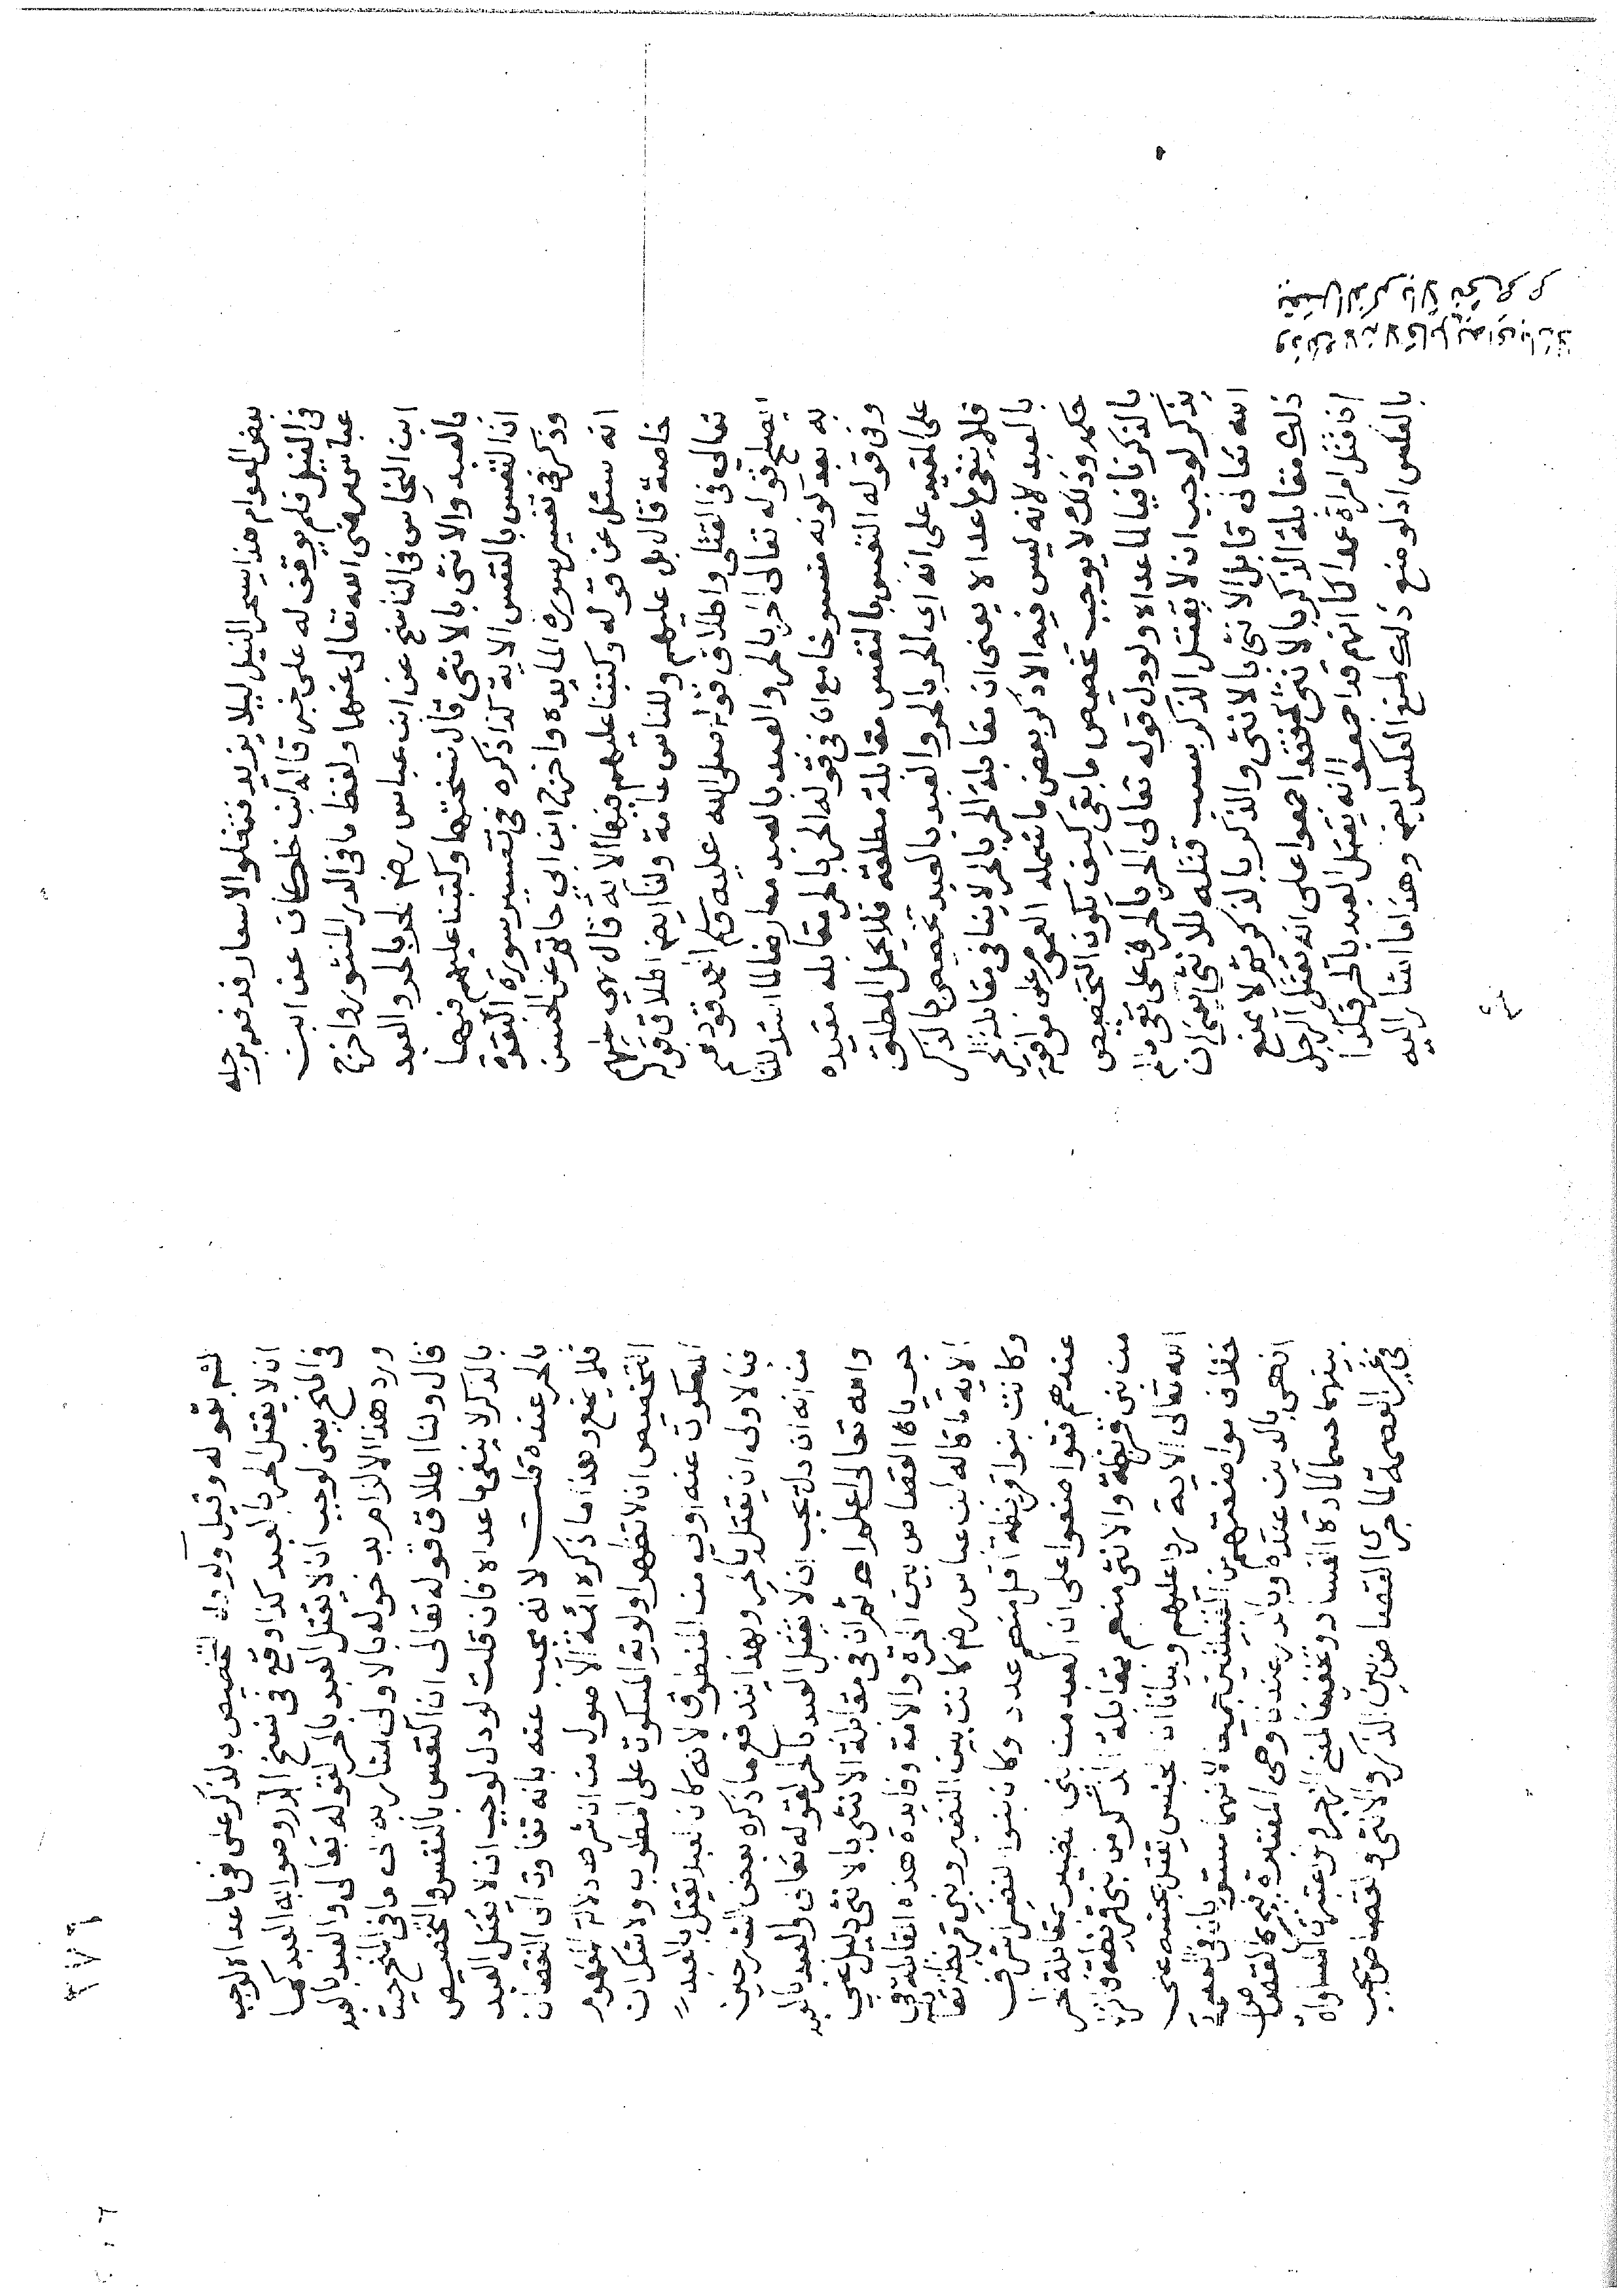 بعض العوام هذا يسحر النيل ليلا يزيد فتغلوا الاسعار فدفعه برجله
فى النيل فلم يوقف له على خبر قاله ابن خلكان عن ابن
عباس رضى الله تعالى عنهما ولفظ ما فى الدر المنثور واخرج
ابن النحاس فى الناسخ عن ابن عباس رضى الحر بالحر والعبد
بالعبد والانثى بالانثى قال نسختها وكتبنا عليهم فيها
ان النفس بالنفس الاية كذا ذكره فى تفسير سورة البقرة
وذكر فى تفسير سورة المايدة واخرج ابن ابى حاتم عن الحسن
انه سئل عن قوله وكتبنا عليهم فيها الاية قال هى عليهم
خاصة قال بل عليهم وللناس عامة ولنا ايضا اطلاق قوله
تعالى فى القتلى واطلاق قوله صلى الله عليه وسلم العمد قود
ايصلح قوله تعالى الحر بالحر والعبد بالعبد معارضا لما استدللنا
به بعد كونه منسوخا مع ان فى قوله الحر بالحر مقابلة مقيده
وفى قوله النفس بالنفس مقابلة مطلقة فلا يحمل المطلق
على المقيد على انه اى الحر بالحر والعبد بالعبد تخصيص بالذكر
فلا ينفى ما عداه يعنى ان مقابلة الحر بالحر لا ينافى مقابلة الحر
بالعبد لانه ليس فيه الا ذكر بعض ما شمله العموم على موافقة
حكمه وذلك لا يوجب تخصيص ما بقى كيف يكون التخصيص
بالذكر نافيا لما عداه ولو دل قوله تعالى الحر بالحر على نفى ما لم
يذكر لوجب ان لا يقتل الذكر بسبب قتله للانثى يعنى ان
الله تعالى قابل الانثى بالانثى والذكر بالذكر ثم لا يمنع
ذلك مقابلة الذكر بالانثى فقد اجمعوا على انه يقتل الرجل
اذا قتل امراة عمدا كما انهم قد اجمعوا انه يقتل العبد بالحر فكذا
بالعكس اذ لو منع ذلك لمنع العكس ايضا وهذا ما اشار اليه
لشم بقوله وقيل ولو دل التخصيص بالذكر على نفى ما عداه لوجب
ان لا يقتل الحر بالعبد كذا وقع فى نسخ الدرر وصوابه العبد كما
فى المنح يعنى لوجب ان لا يقتل العبد بالحر لقوله تعالى والعبد بالعبد
ورد هذا الالزام بدخوله بالاولى اشار بذلك ما فى المنح حيث
قال ولنا اطلاق قوله تعالى ان النفس بالنفس والتخصيص
بالذكر لا ينفى ما عداه فان قلت لو دل لوجب ان لا يقتل العبد
بالحر عنده قلت لانه يجيب عنه بانه تفاوت الى النقصان
فلا يمنع وهذا ما ذكره ائمة الاصول من ان شرط دلالة المفهوم
التخصيص ان لا تظهر اولوية المسكوت على المطلوب ولا شك ان
المسكوت عنه اولى من المنطوق لانه كان العبد يقتل بالعبد
فبالاولى ان يقتل بالحر وبهذا يندفع ما ذكره بعض الشارحين
من انه ان دل يجب ان لا يقتل العبد بالحر لقوله تعالى والعبد بالعبد
والله تعالى اعلم ثم ان فى مقابلة الانثى بالانثى دليل على
جريان القصاص بين الحرة والامة وفايدة هذه المقابلة فى
الاية ما قاله ابن عباس رضى كانت بين النضير وبنى قريظة
وكانت بنوا قريظة اقل منهم عدد وكان بنوا النضير اشرف
عندهم فتواضعوا على ان العبد من بنى نضير بمقابلة الحر
من بنى قريظة والانثى منهم بمقابلة الذكر من بنى قريظة فانزل
الله تعالى الاية ردا عليهم وبيانا ان الجنس يقتل بجنسه على
خلاف مواضعتهم من القبيلتين جميعا لانهما مستويان فى العصمة
اذ هى بالدين عنده وبالدار عندنا وهى المعتبرة فيجرى القصاص
بينهما حسما لمادة الفساد وتحقيقا لمعنى الزجر ولو اعتبرت المساواة
فى غير العصمة لما جرى القصاص بين الذكر والانثى والقصاص يجب